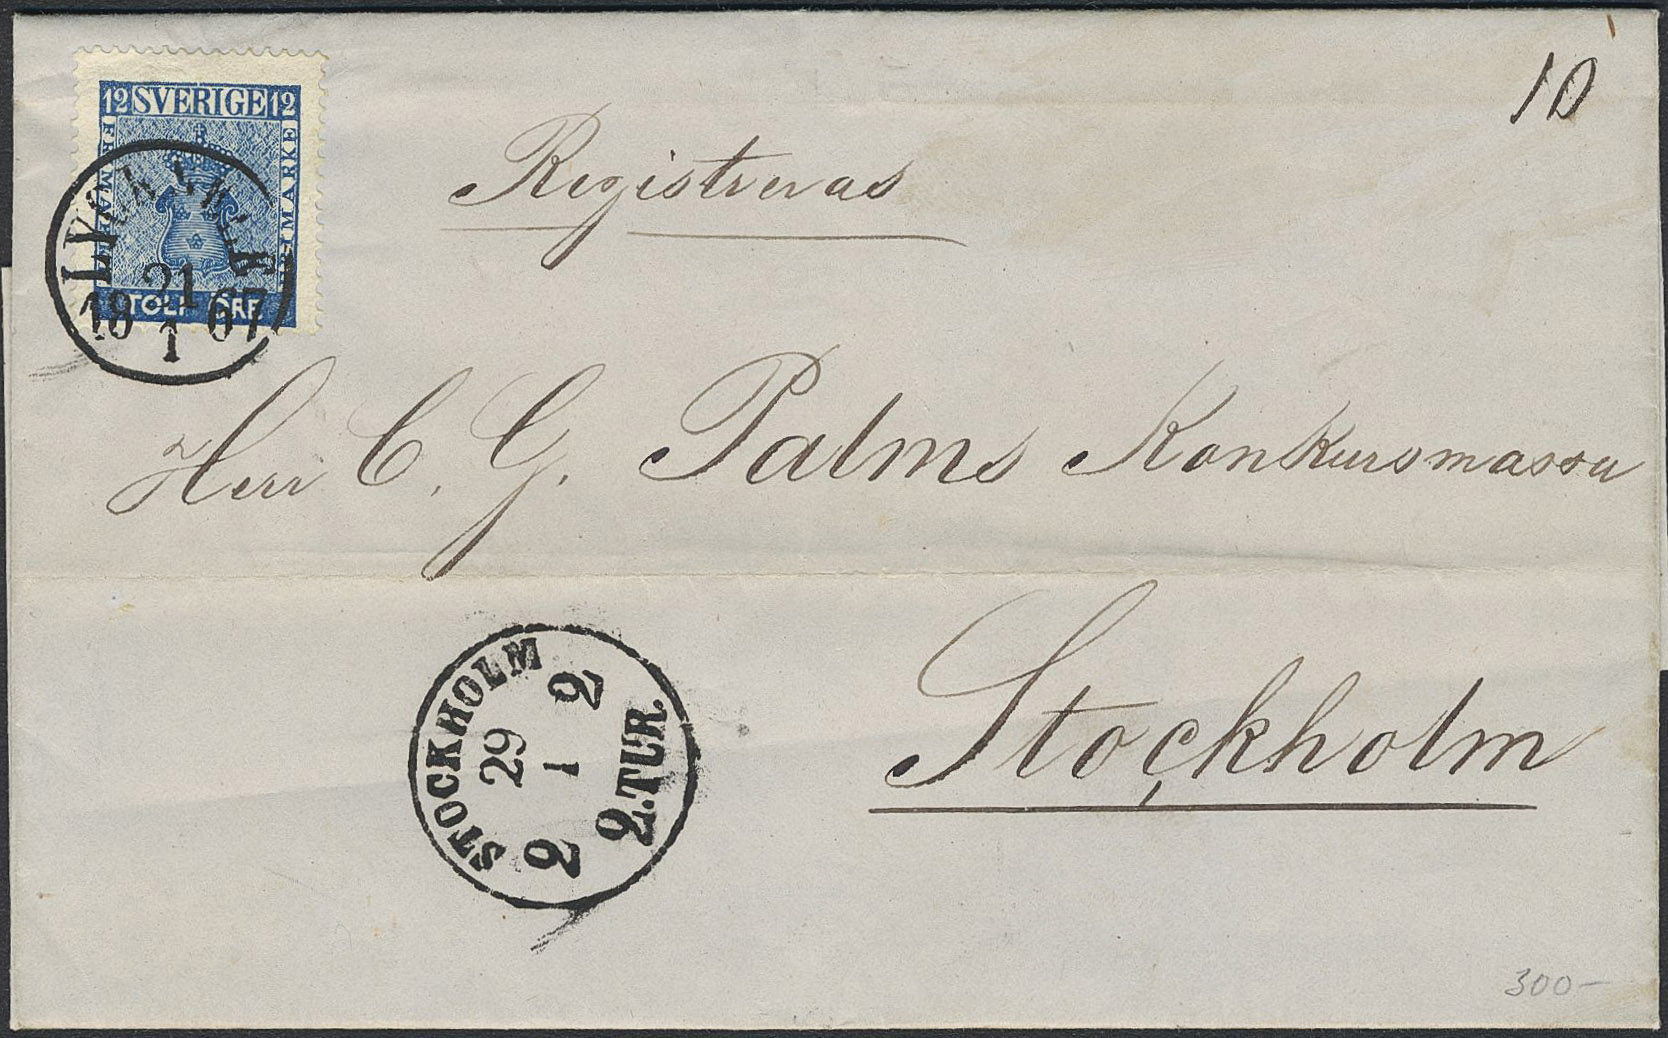 10
12 SVERIGE 12
FRIMÄRKE
TOLF ÖRE
21
1867
1
Registreras
Herr C. G. Palms Konkursmassa
Stockholm
STOCKHOLM
29
1
2
2
2.TUR.
300-